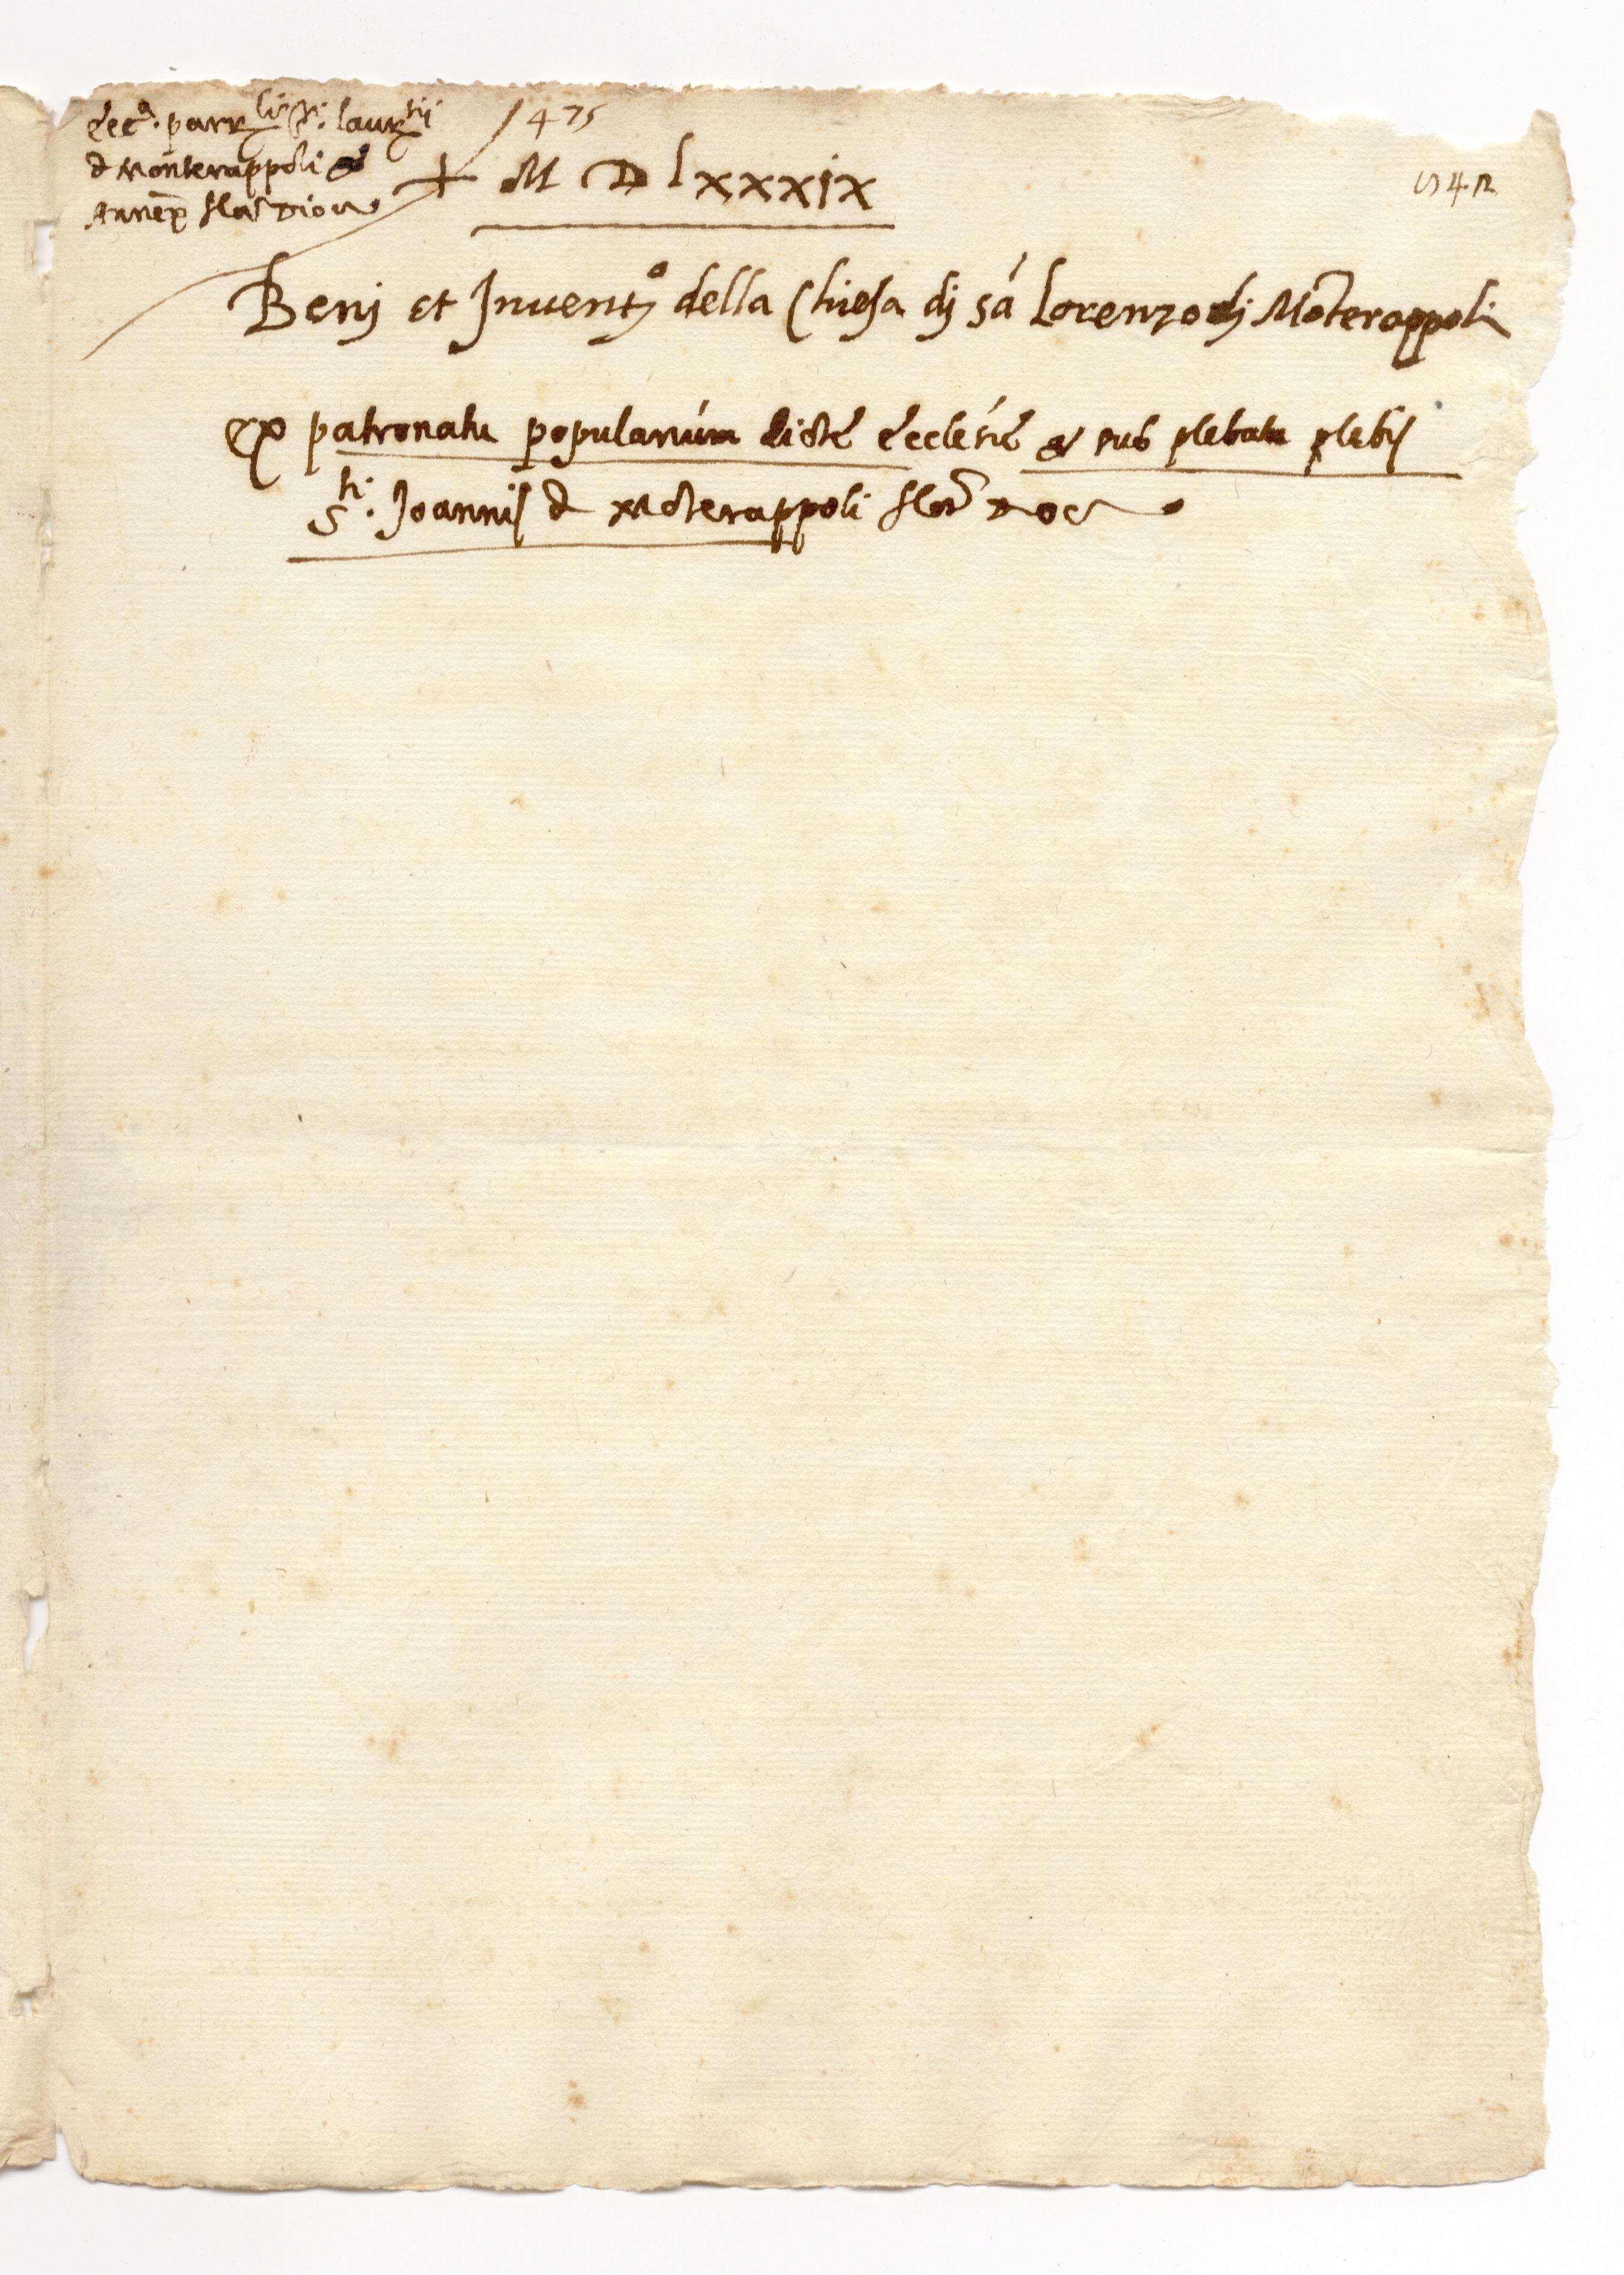 Ecc.ª parr.li S.ti laur.tii
d Monterappoli
Annexa flor
475
+ M D lxxxix
Benj et Inventº della Chiesa dj sā Lorenzo dj Mōterappoli
Ex patronatu popularium dictę Ecclesię & sub plebatu plebis
S.ti Joannis d Mōterappoli flor Doc